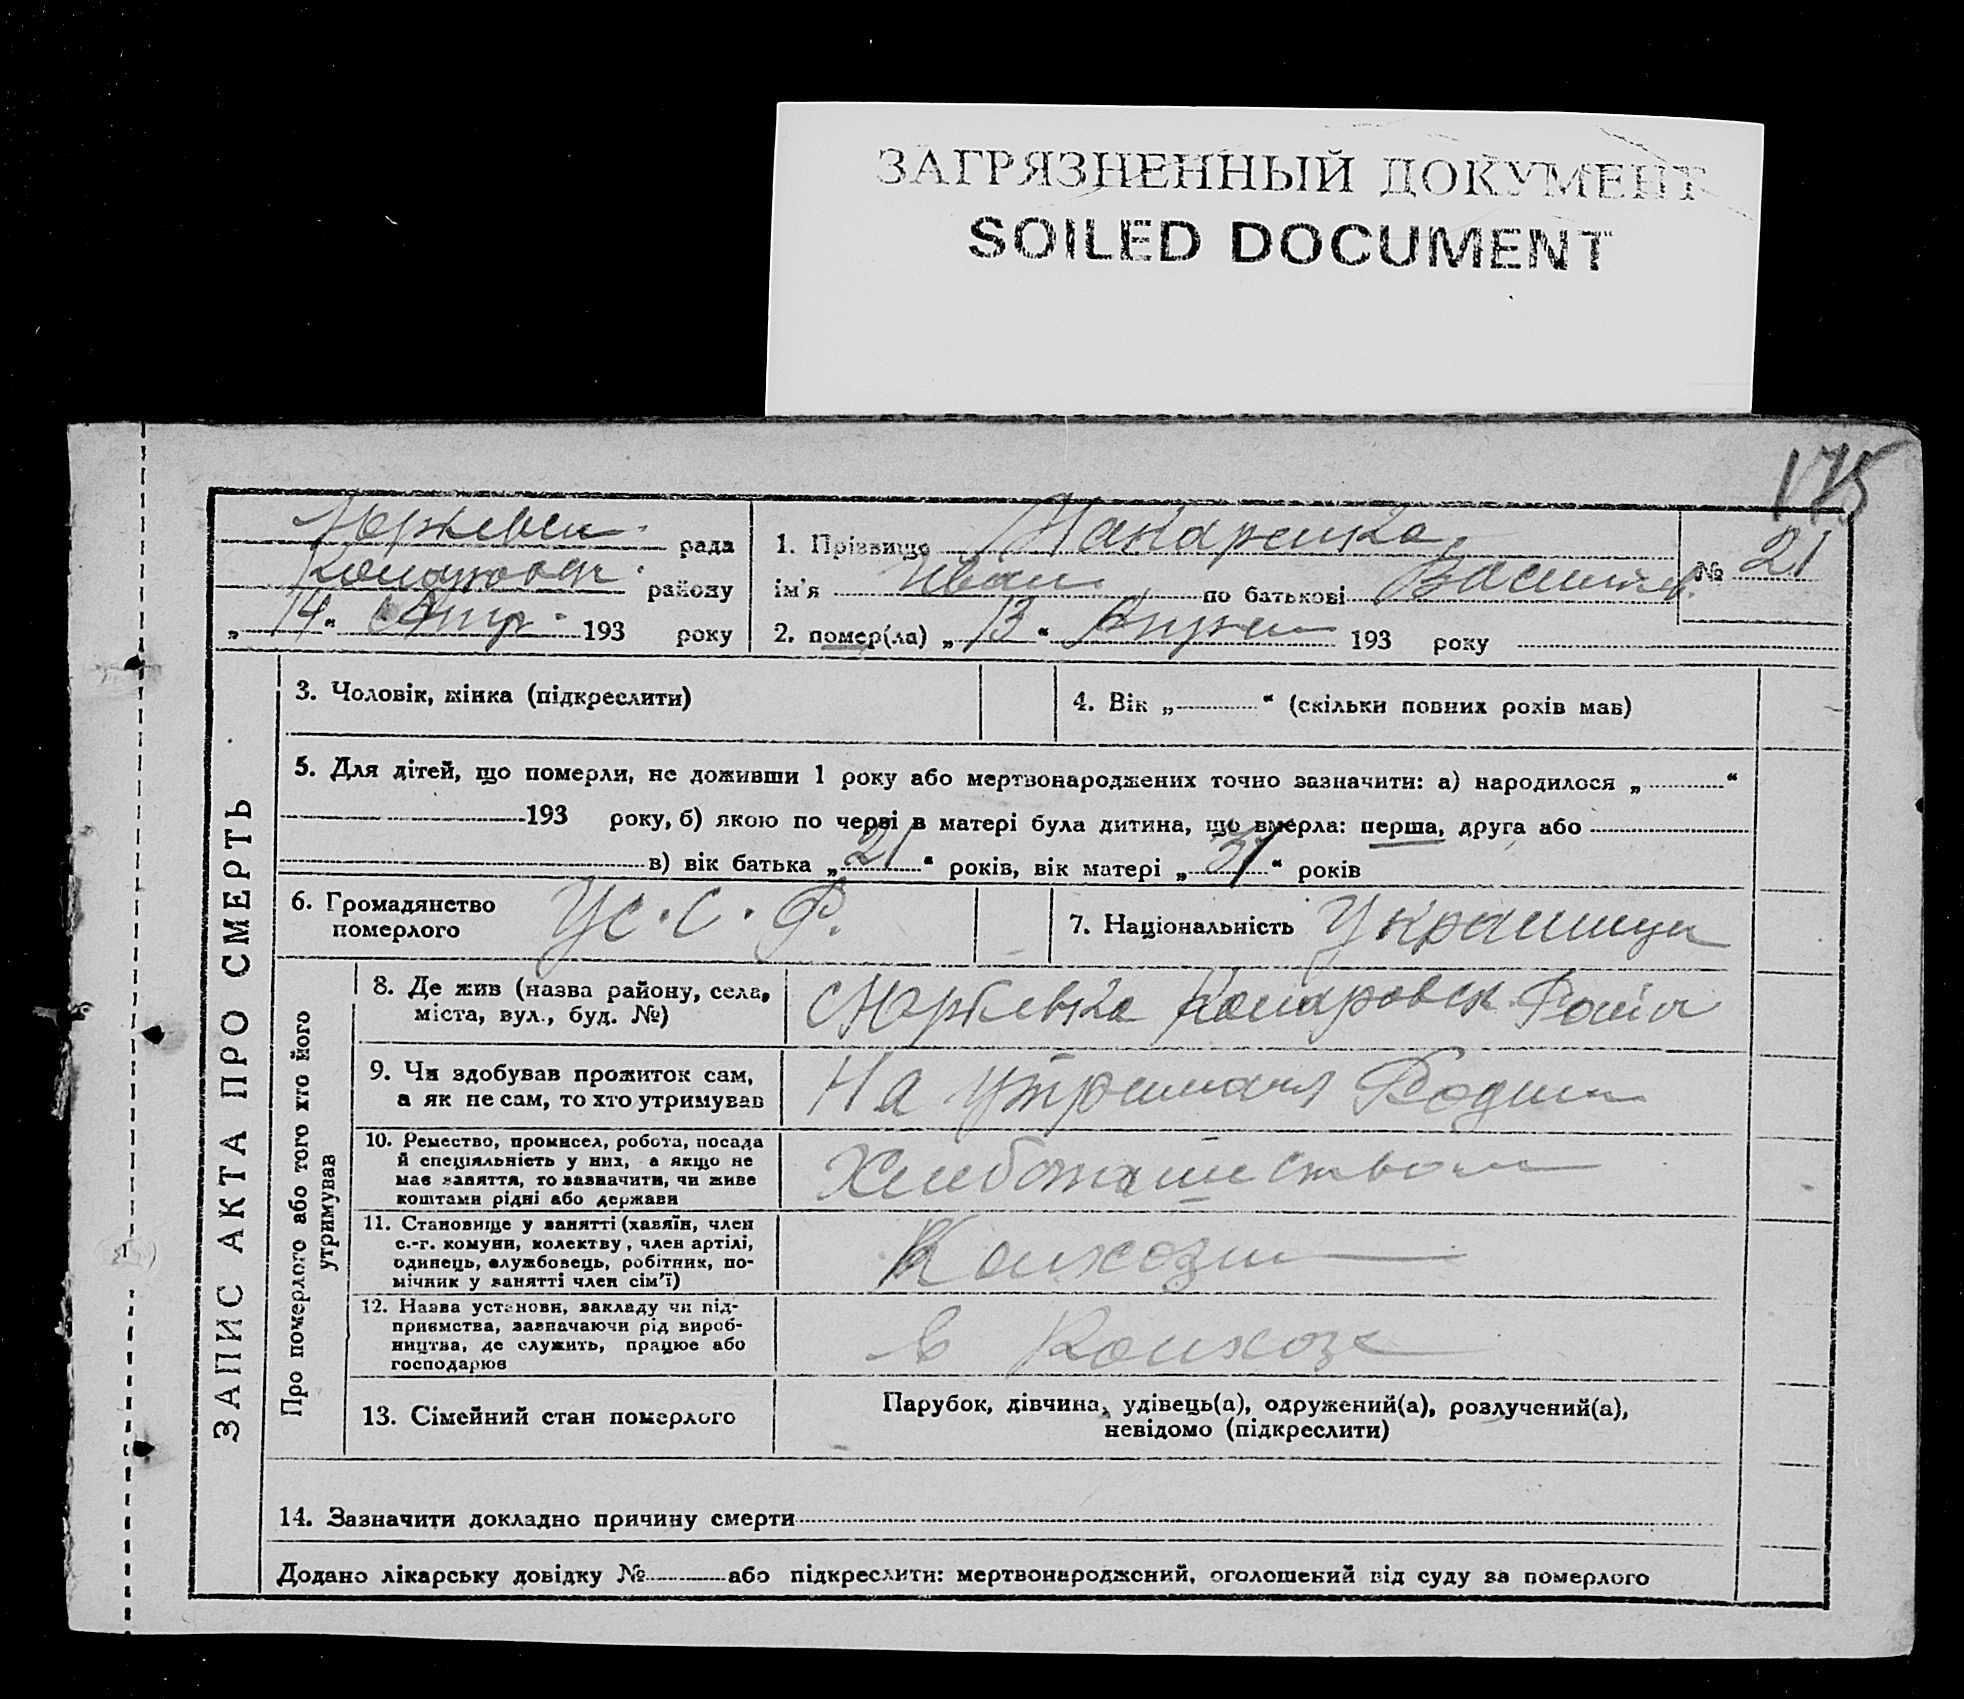 ЗАГРЯЗНЕННЫЙ ДОКУМЕНТ
SOILED DOCUMENT
175
рада
району
„14“ 193 року
1. Прізвище Макаренко
ім'я Иван по батькові
№ 21
2. помер(ла) „13“ 193 року
ЗАПИС АКТА ПРО СМЕРТЬ
3. Чоловік, жінка (підкреслити)
4. Вік „ “ (скільки повних років мав)
5. Для дітей, що померли, не доживши 1 року або мертвонароджених точно зазначити: а) народилося „ “
193 року, б) якою по черзі в матері була дитина, що вмерла: перша, друга або
в) вік батька „21“ років, вік матері „31“ років
6. Громадянство
померлого
УС.С.Р.
7. Національність
Про померлого або того хто його
утримував
8. Де жив (назва району, села,
міста, вул., буд. №)
9. Чи здобував прожиток сам,
а як не сам, то хто утримував
На
10. Ремество, промисел, робота, посада
й спеціяльність у них, а якщо не
має заняття, то зазначити, чи живе
коштами рідні або держави
11. Становище у занятті (хазяїн, член
с.-г. комуни, колектву, член артілі,
одинець, службовець, робітник, по-
мічник у занятті член сім'ї)
12. Назва установи, закладу чи під-
приємства, зазначаючи рід вироб-
ництва, де служить, працює або
господарює
в Колхозе
13. Сімейний стан померлого
Парубок, дівчина, удівець(а), одружений(а), розлучений(а),
невідомо (підкреслити)
14. Зазначити докладно причину смерти
Додано лікарську довідку № або підкреслити: мертвонароджений, оголошений від суду за померлого